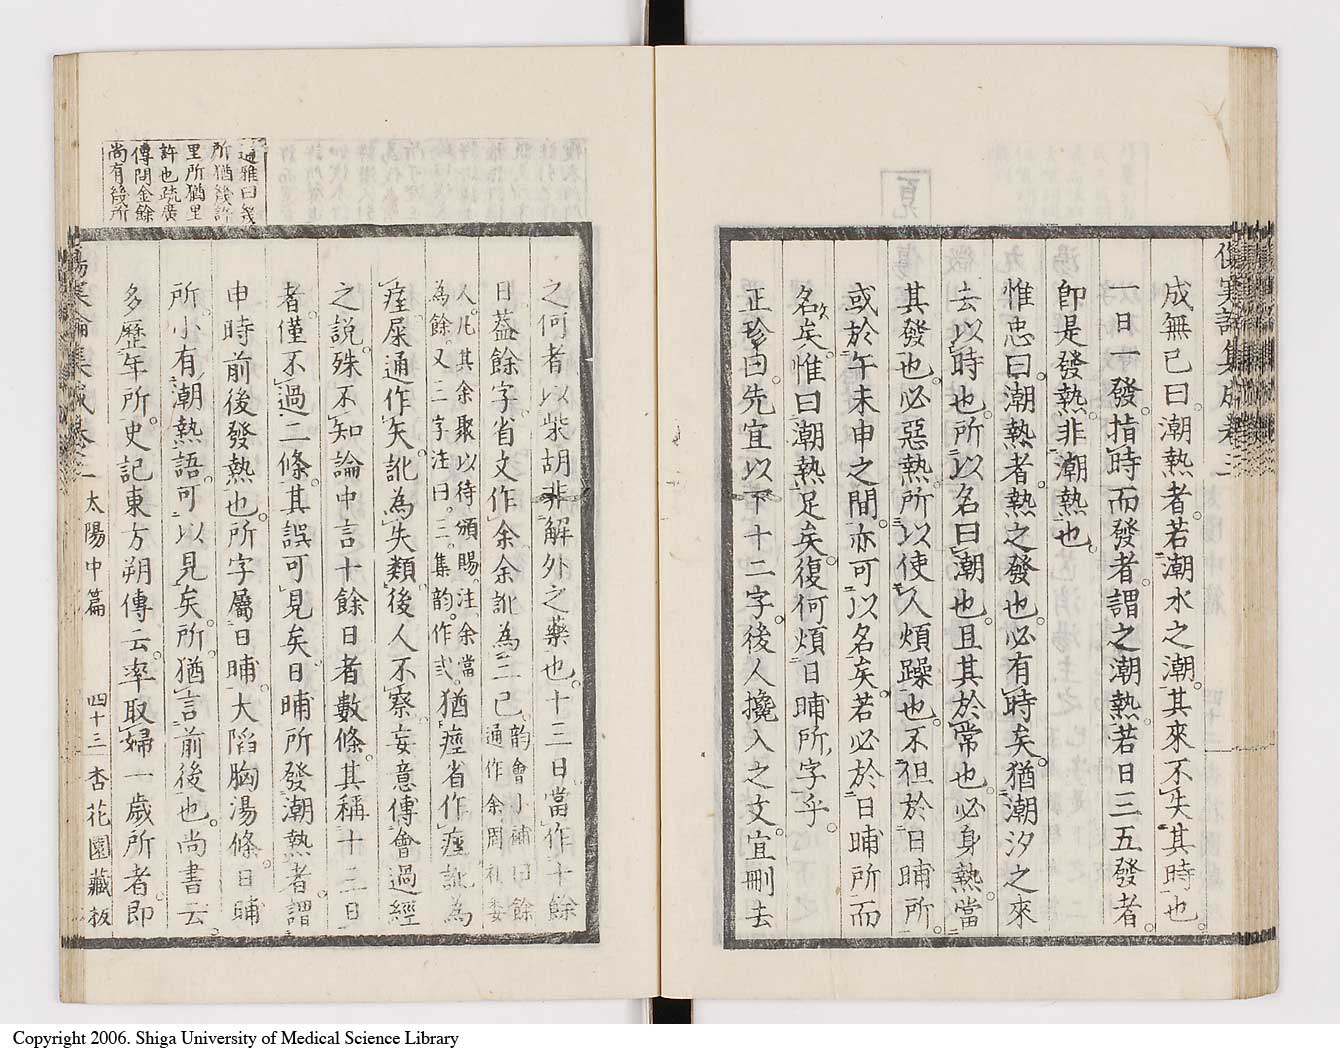 成無己曰潮熱者若潮水之潮其來不失其時也
一日一發指時而發者謂之潮熱若日三五發者
即是發熱非潮熱也
惟忠曰潮熱者熱之發也必有時矣猶潮汐之來
去以時也所以名曰潮也且其於常也必身熱當
其發也必惡熱所以使人煩躁也不但於日晡所
或於午未申之間亦可以名矣若必於日晡所而
名矣惟曰潮熱足矣復何煩日晡所字乎
正珍曰先宜以下十二字後人攙入之文宜刪去
之何者以柴胡非解外之藥也十三日當作十餘
日蓋餘字省文作余余訛為三已韵會小補曰餘通作余周礼委
人凡其余聚以待頒賜注余當為餘又三字注曰三集韵作弎猶痙省作痓訛為
痓屎通作矢訛為失類後人不察妄意傳會過經
之說殊不知論中言十餘日者數條其稱十三日
者僅不過二條其誤可見矣日晡所發潮熱者謂
申時前後發熱也所字屬日晡大陷胸湯條日晡
所小有潮熱語可以見矣所猶言前後也尚書云
多歷年所史記東方朔傳云率取婦一歲所者即
通雅曰幾
所猶幾許
里所猶里
許也疏廣
傳問金餘
尚有幾所
傷寒論集成卷二 太陽中篇 四十三 杏花園藏板
Copyright 2006. Shiga University of Medical Science Library